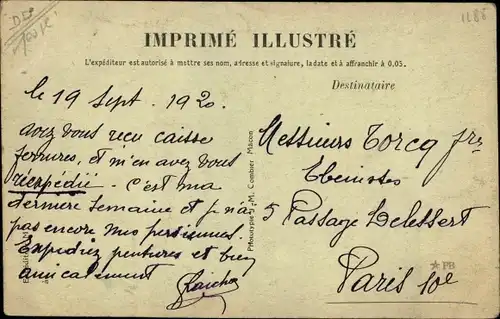 1288
IMPRIMÉ ILLUSTRÉ
L'expéditeur est autorisé à mettre ses nom, adresse et signature, la date et à affranchir à 0,05.
Destinataire
le 19 Sept. 1920
avez vous reçu caisse
ferrures, et m'en avez vous
réexpédié - C'est ma
dernière semaine et je n'ai
pas encore mes persiennes.
Expediez pentures et bien
amicalement
Phototypie J.-M. Combier Mâcon
Messieurs Torcq frs
Ebenistes
5 Passage Delessert
Paris 10e
*PB